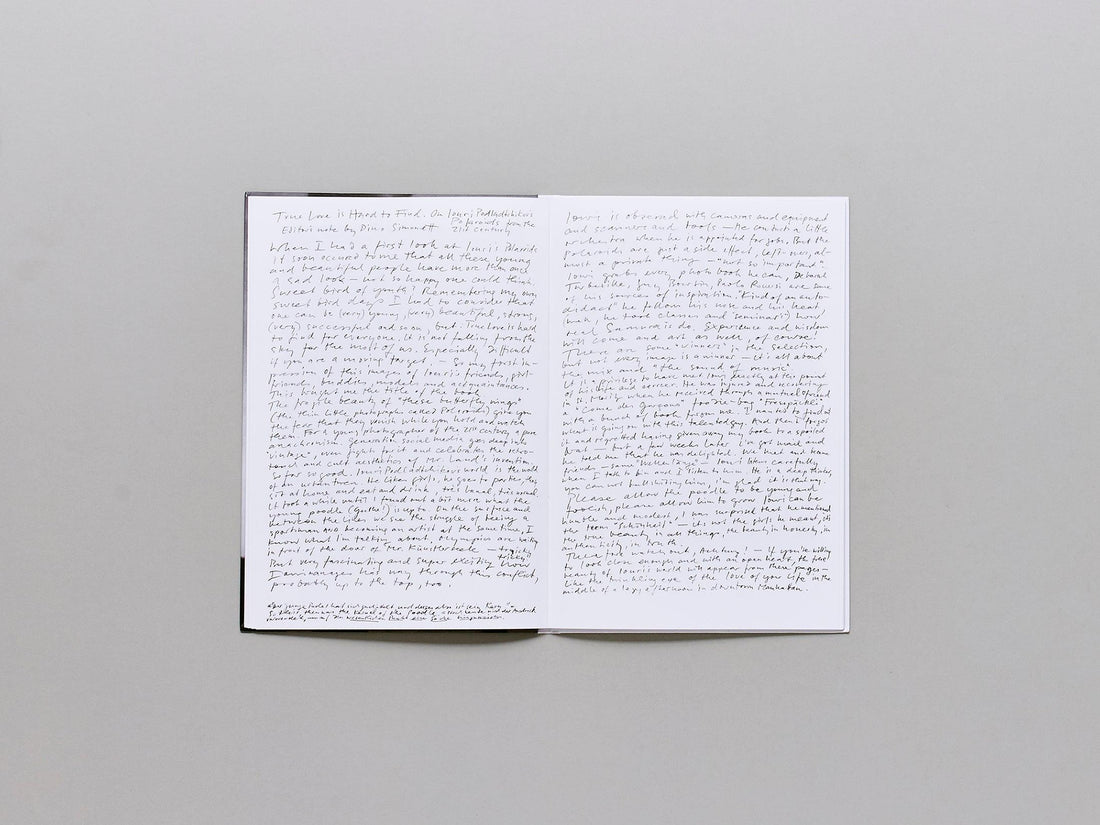 True Love is Hard to Find. On Iouri Podladtchikovs
Polaroids from the
Editors note by Dino Simonett 21st century
When I had a first look at Iouris Polaroids
it soon occured to me that all these young
and beautiful people have more than once
a sad look – not so happy one could think.
Sweet bird of youth! Remembering my own
sweet bird days I had to consider that
one can be (very) young, (very) beautiful, strong,
(very) successful and soon, but: True Love is hard
to find for everyone. It is not falling from the
sky for the most of us. Especially difficult
if you are a moving target. – So my first im-
pression of this images of Iouri's friends, girl-
friends, buddies, models and acquaintances.
This brought me the title of the book.
The fragile beauty of "these butterfly wings"
(the thin little photographs called Polaroids) give you
the fear that they vanish while you hold and watch
them. For a young photographer of the 21st century a pure
anachronism. Generation social media goes deep into
"vintage", even fights for it and celebrates the retro-
touch and cult aesthetics of Mr. Land's invention.
So far so good. Iouri Podladtchikovs world is the world
of an urban town. He likes girls, he goes to parties, they
sit at home and eat and drink, très banal, très normal.
It took a while until I found out a bit more what the
young poodle (Goethe!) is up to. On the surface and
between the lines we see the struggle of being a
sportsman and becoming an artist at the same time, I
know what I'm talking about. Olympics are waiting
in front of the door of Mr. Künstlerseele – tricky,
tricky!
But very fascinating and super exciting how
I own manages his way through this conflict,
probably up to the top, too.
Iouri is obsessed with cameras and equipment
and scanners and tools – He conduct a little
orchestra when he is appointed for jobs. But the
polaroids are just a side effect, left-overs, al-
most a private thing – "not so important".
Iouri grabs every photo book he can, Deborah
Turbeville, Guy Bourdin, Paolo Roversi are some
of his sources of inspiration. Kind of an auto-
didact he follow his nose and his heart
(well, he took classes and seminars!) how
real Samurais do. Experience and wisdom
will come and art as well of course!
There are some "winners" in the selection,
but not every image is a winner – it's all about
the mix and "the sound of music"
It is a privilege to have met Iouri directly at this point
of his life and career. He was injured and recovering
in St. Moritz when he received through a mutual friend
a "Come des Garçons" foodie-bag "Fresspäckli"
with a bunch of books from me. I wanted to find out
what is going on with this talented guy. And then I forgot
it and regretted having given away my books to a spoiled
brat – but a few weeks later I've got mail and
he told me that he was delighted. We met and became
friends – same "wellenlänge" – Iouri listens carefully
when I talk to him and I listen to him. He is a deep thinker,
you can not bullshitting him, I'm glad it is that way.
Please allow the poodle to be young and
foolish, please allow him to grow. Iouri can be
humble and modest, I was surprised that he mentioned
"Schönheit" – its not the girls he meant, its
the true beauty in all things, the beauty in honesty, in
authenticity, in truth.
Therefore watch out, Achtung! – If you're willing
to look close enough and with an open heart, the fine
beauty of Iouris world will appear from these pages –
like the twinkling eye of the love of your life in the
middle of a lazy afternoon in downtown Manhattan.